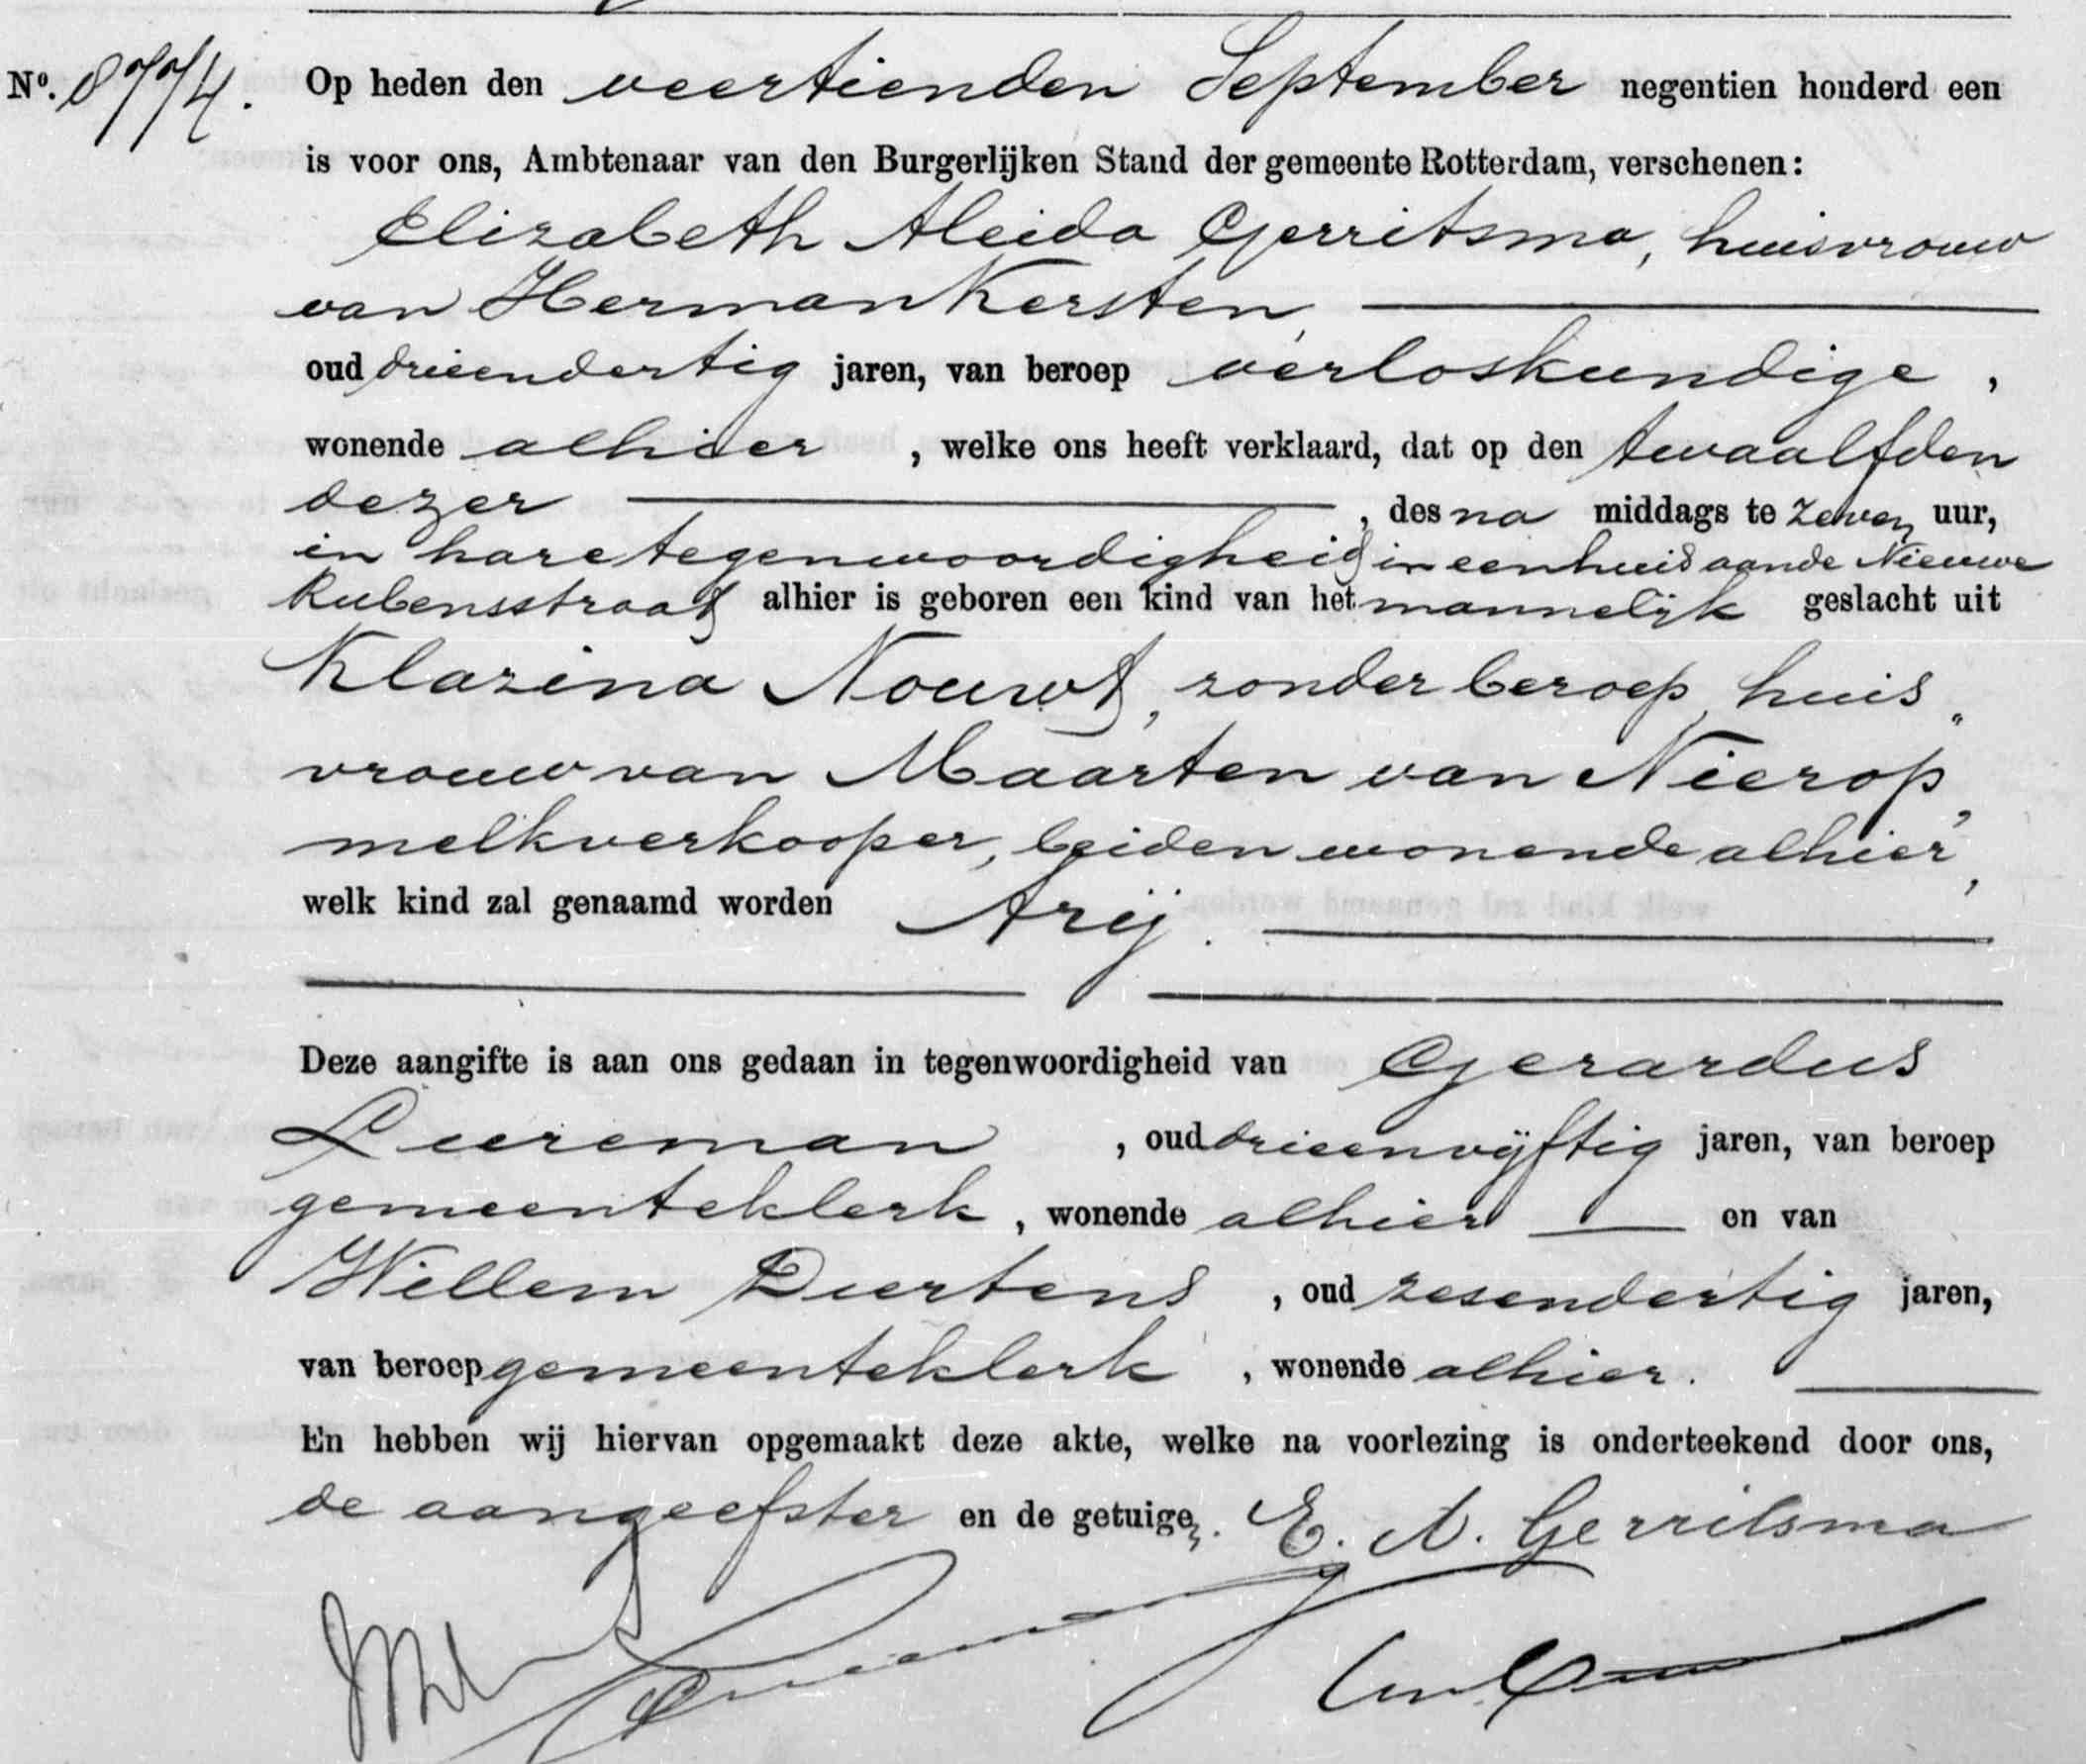 No. 8774. Op heden den veertienden September negentien honderd een
is voor ons, Ambtenaar van den Burgerlijken Stand der gemeente Rotterdam, verschenen:
Elizabeth Aleida Gerritsma, huisvrouw
van Herman Kersten,
oud drieendertig jaren, van beroep verloskundige,
wonende alhier, welke ons heeft verklaard, dat op den twaalfden
dezer, des na middags te zeven uur,
in hare tegenwoordigheid in een huis aan de Nieuwe
Rubensstraat alhier is geboren een kind van het mannelijk geslacht uit
Klazina Nouwt, zonder beroep, huis„
vrouw van Maarten van Nierop,
melkverkooper, beiden wonende alhier,
welk kind zal genaamd worden Arij.
Deze aangifte is aan ons gedaan in tegenwoordigheid van Gerardus
Luereman, oud drieenvijftig jaren, van beroep
gemeenteklerk, wonende alhier en van
Willem Duertens, oud zesendertig jaren,
van beroep gemeenteklerk, wonende alhier.
En hebben wij hiervan opgemaakt deze akte, welke na voorlezing is onderteekend door ons,
de aangeefster en de getuigen. E. A. Gerritsma